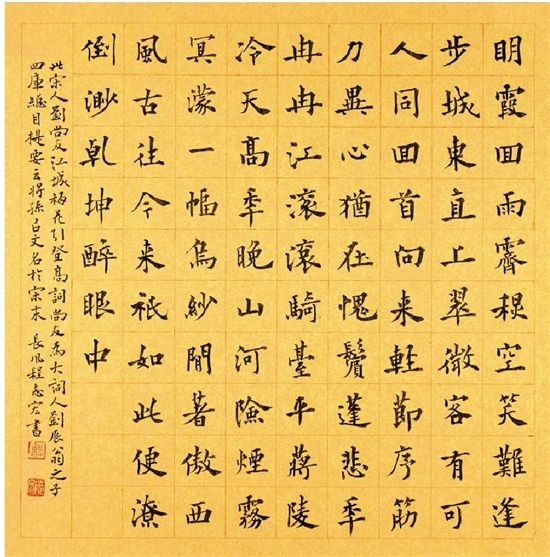 眀霞回雨霽秋空笑難逢
步城東直上翠微客有可
人同回首向来輕節序筋
力異心猶在愧鬢蓬悲年
冉冉江滾滾騎臺平蔣陵
冷天高年晚山河險煙霧
冥濛一幅烏紗閒著傲西
風古往今来祇如此便潦
倒渺乾坤醉眼中
此宋人劉尚友江城梅花引登高詞尚友為大詞人劉辰翁之子
四庫總目提要云將孫㠯文名於宋末 長風程志宏書